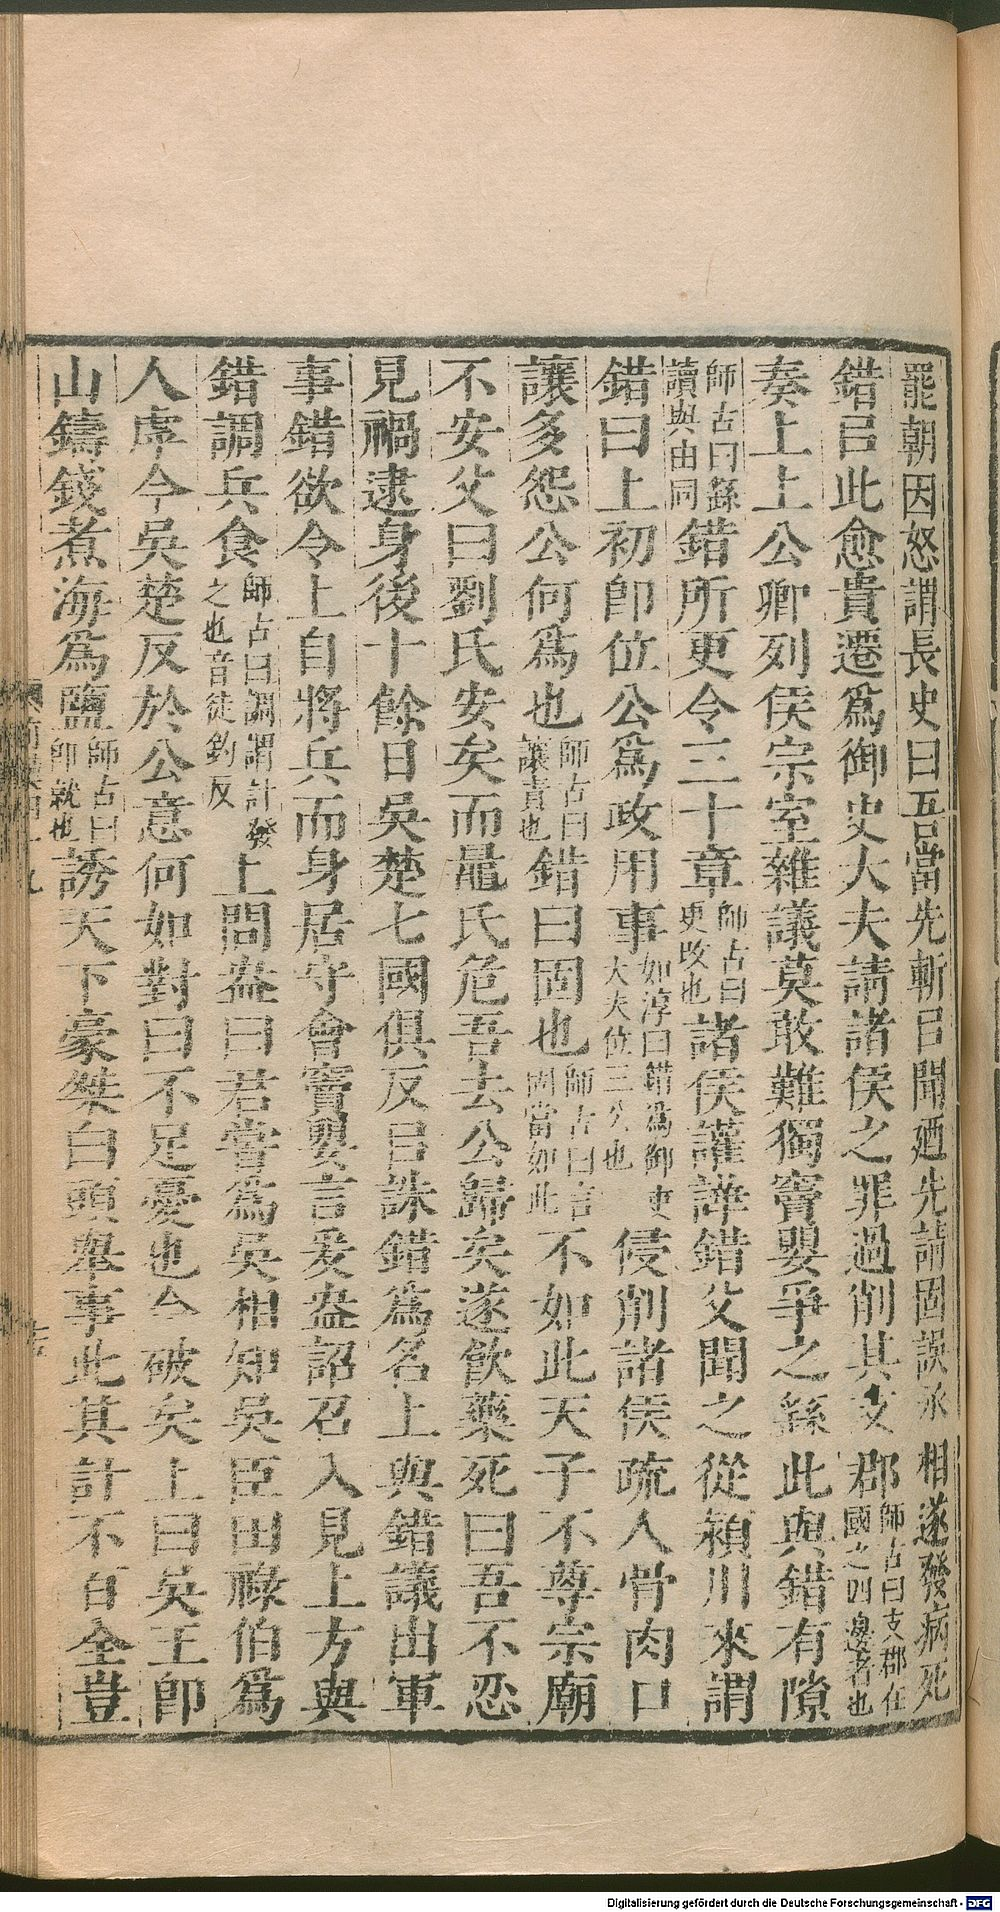 罷朝因怒謂長史曰吾當先斬㠯聞廼先請固誤丞相遂發病死
錯㠯此愈貴遷爲御史大夫請諸侯之罪過削其支郡師古曰支郡在國之四邊者也
奏上上公卿列侯宗室雜議莫敢難獨竇嬰爭之繇此與錯有隙
師古曰繇讀與由同錯所更令三十章師古曰更改也諸侯讙譁錯父聞之從潁川來謂
錯曰上初卽位公爲政用事如淳曰錯爲御史大夫位三公也侵削諸侯疏人骨肉口
讓多怨公何爲也師古曰讓責也錯曰固也師古曰言固當如此不如此天子不尊宗廟
不安父曰劉氏安矣而鼂氏危吾去公歸矣遂飲藥死曰吾不忍
見禍逮身後十餘日吳楚七國俱反㠯誅錯爲名上與錯議出軍
事錯欲令上自將兵而身居守會竇嬰言爰盎詔召入見上方與
錯調兵食師古曰調謂計發之也音徒釣反上問盎曰君嘗爲吳相知吳臣田祿伯爲
人虖今吳楚反於公意何如對曰不足憂也今破矣上曰吳王卽
山鑄錢煮海爲鹽師古曰卽就也誘天下豪桀白頭舉事此其計不百全豈
Digitalisierung gefördert durch die Deutsche Forschungsgemeinschaft - DFG